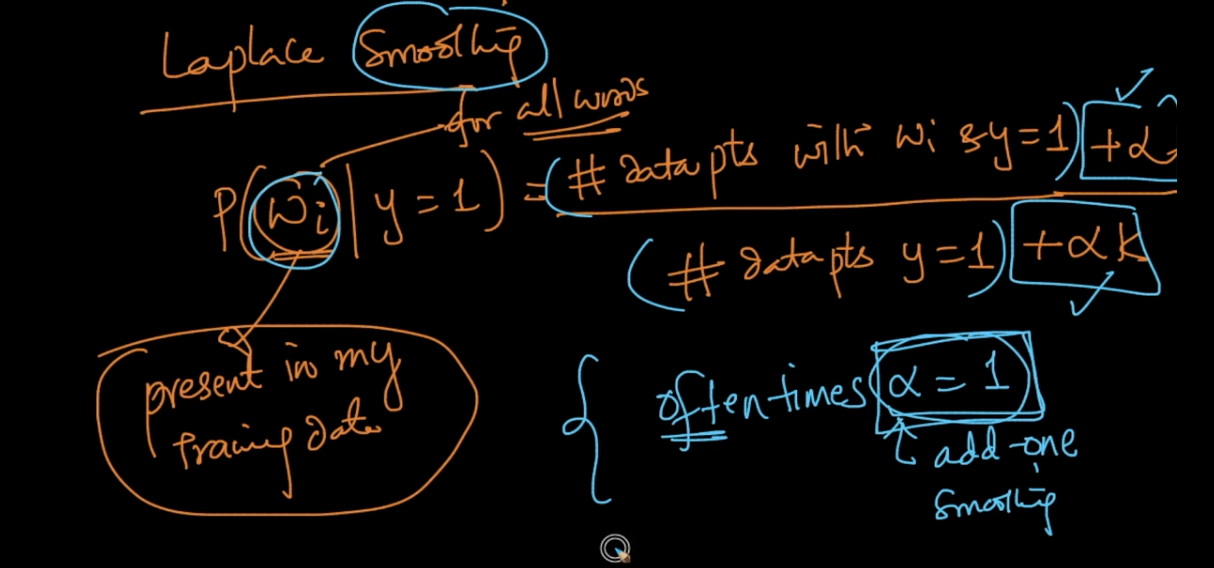 Laplace Smoothing
for all words
P(wi | y = 1) = (# data pts with wi & y = 1) + α
(# data pts y = 1) + αk
present in my
training data
often times α = 1
add-one
smoothing